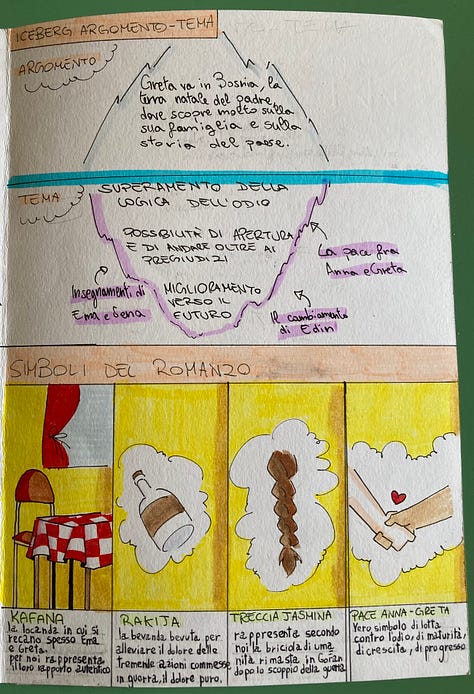 ICEBERG ARGOMENTO-TEMA
ARGOMENTO
Greta va in Bosnia, la
terra natale del padre,
dove scopre molto sulla
sua famiglia e sulla
storia del paese.
TEMA
SUPERAMENTO DELLA
LOGICA DELL'ODIO
POSSIBILITÀ DI APERTURA
E DI ANDARE OLTRE AI
PREGIUDIZI
La pace fra
Anna e Greta
Insegnamenti di
Ema e Sena
MIGLIORAMENTO
VERSO IL
FUTURO
Il cambiamento
di Edin
SIMBOLI DEL ROMANZO
KAFANA
la locanda in cui si
recano spesso Ema
e Greta.
per noi rappresenta
il loro rapporto autentico
RAKIJA
la bevanda bevuta per
alleviare il dolore delle
tremende azioni commesse
in guerra, il dolore puro.
TRECCIA JASMINA
rappresenta secondo
noi la briciola di uma
nità rimasta in Goran
dopo lo scoppio della guerra
PACE ANNA-GRETA
Vero simbolo di lotta
contro l'odio, di maturità,
di crescita, di progresso